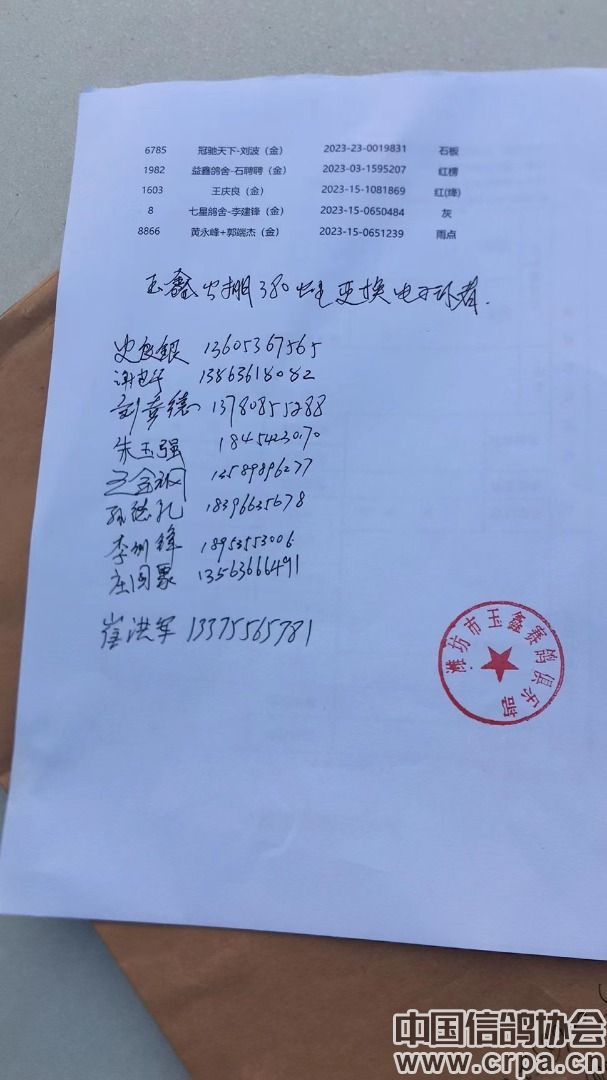 6785 冠驰天下-刘波（金） 2023-23-0019831 石板
1982 益鑫鸽舍-石聘聘（金） 2023-03-1595207 红楞
1603 王庆良（金） 2023-15-1081869 红(绛)
8 七星鸽舍-李建锋（金） 2023-15-0650484 灰
8866 黄永峰+郭端杰（金） 2023-15-0651239 雨点
玉鑫公棚380 更换电子环者.
13605367565
13863618082
刘 德 13780855288
朱玉强
王金
孙德孔 18396635678
李 锋 18953553006
庄国 13563666491
崔洪军 13375565781
潍坊市玉鑫赛鸽俱乐部
中国信鸽协会
www.crpa.cn